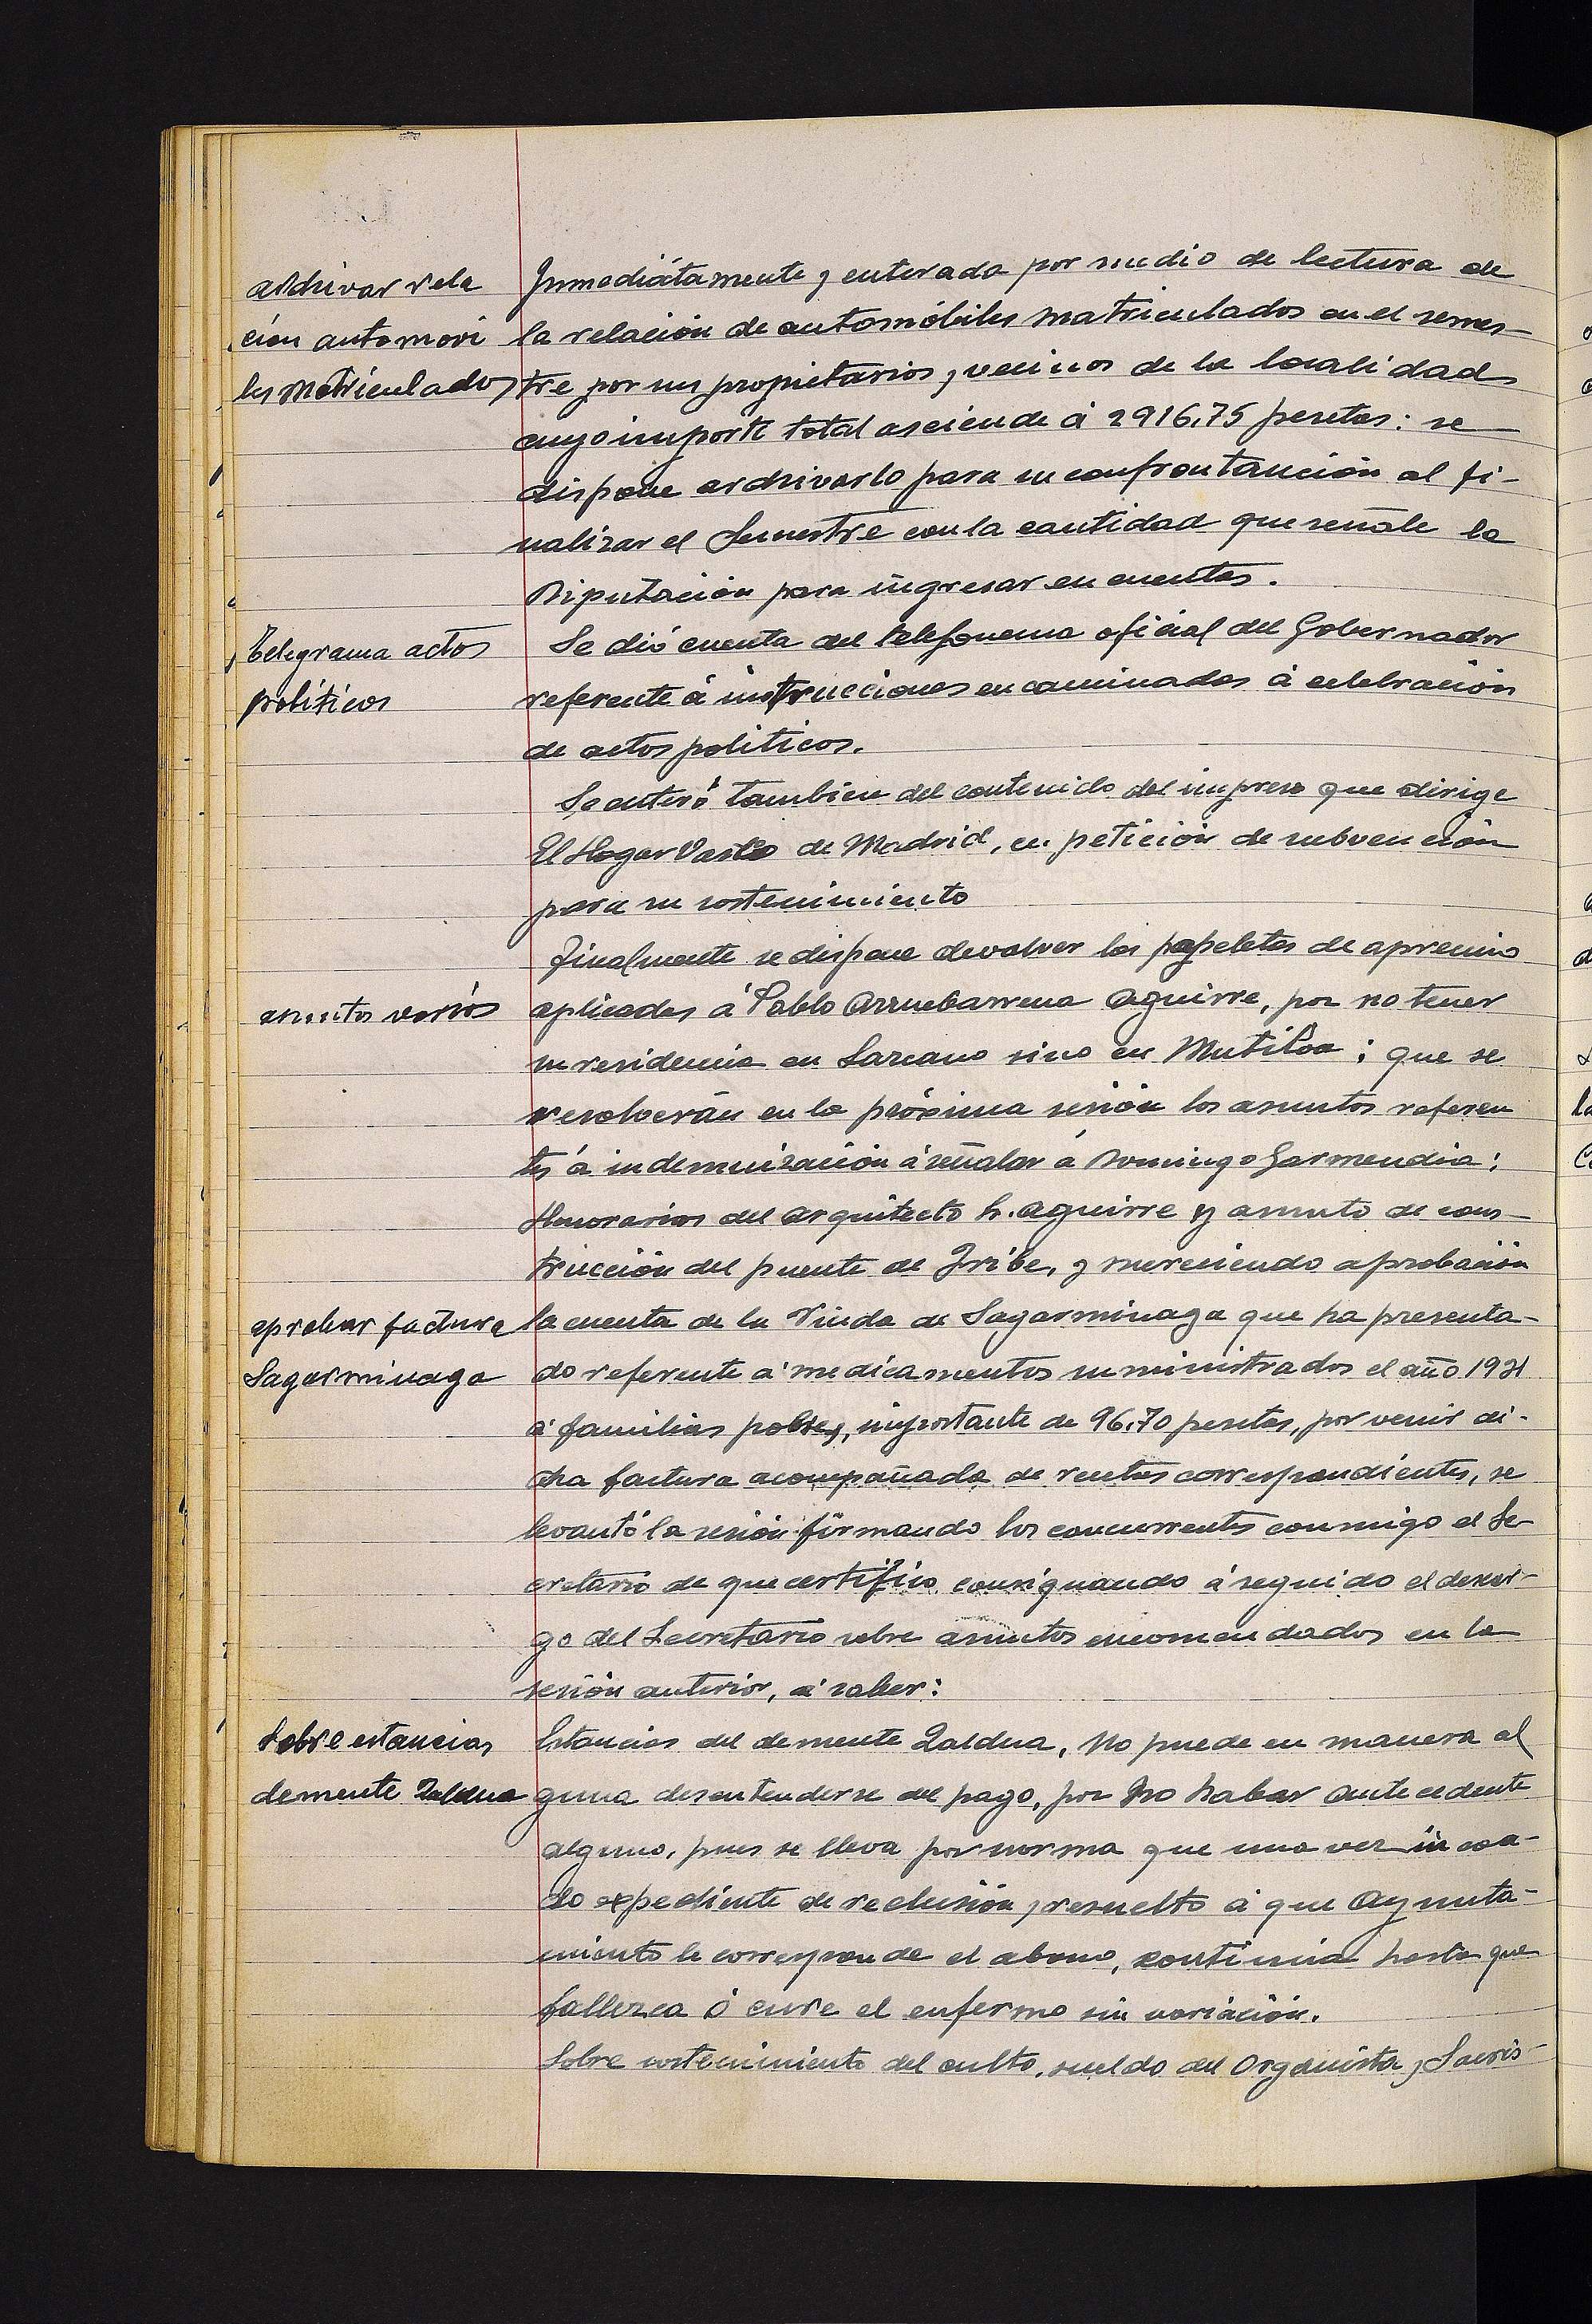 archivar rela
ción automovi
les matriculados
Inmediátamente y enterada por medio de lectura de
la relación de automóbiles matriculados en el semes-
tre por sus propietarios, vecinos de la localidad
cuyo importe total asciende á 2916,75 pesetas: se
dispone archivarlo para su confrontanción al fi-
nalizar el Semestre con la cantidad que señale la
Diputación para ingresar en cuentas.
Telegrama actos
politicos
Se dió cuenta del telefonema oficial del Gobernador
referente á instrucciones encaminadas á celebración
de actos politicos.
Se enteró tambien del contenido del impreso que dirige
El Hogar Vasco de Madrid, en petición de subvención
para su sostenimiento
Finalmente se dispone devolver las papeletas de apremio
asuntos varios
aplicadas á Pablo Arruebarrena Aguirre, por no tener
su residencia en Lazcano sino en Mutiloa; que se
resolverán en la próxima sesión los asuntos referen
tes á indemnización á señalar á Domingo Garmendia;
Honorarios del arquitecto Sr. Aguirre y asunto de cons-
trucción del puente de Iribe, y mereciendo aprobación
aprobar factura
Sagarminaga
la cuenta de la Viuda de Sagarminaga que ha presenta-
do referente á medicamentos suministrados el año 1931
á familias pobres, importante de 96,70 pesetas, por venir di-
cha factura acompañada de recetas correspondientes, se
levantó la sesión firmando los concurrentes conmigo el Se-
cretario de que certifico, consignando á seguido el descar-
go del Secretario sobre asuntos encomendados en la
sesión anterior, á saber:
Sobre estancias
demente Zaldua
Estancias del demente Zaldua, No puede en manera al
guna desentenderse del pago, por no haber antecedente
alguno, pues se lleva por norma que una vez incoa-
do expediente de reclusión y resuelto á que Ayunta-
miento le corresponde el abono, continúa hasta que
fallezca ó cure el enfermo sin variación.
Sobre sostenimiento del culto, sueldo del Organista y Sacris-